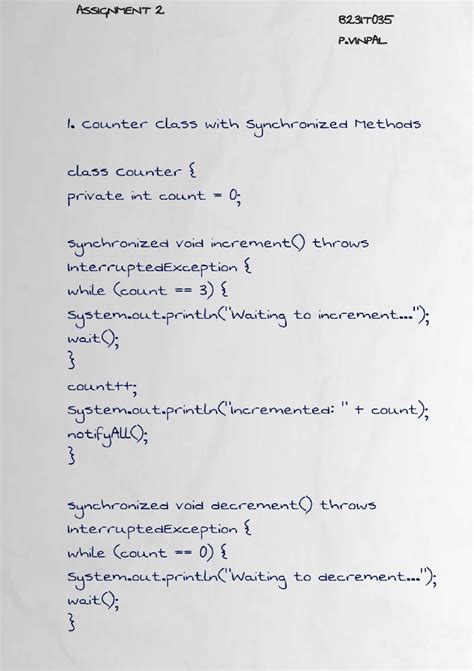 ASSIGNMENT 2
B23IT035
P.VINPAL
1. Counter Class with Synchronized Methods
class Counter {
private int count = 0;
synchronized void increment() throws
InterruptedException {
while (count == 3) {
System.out.println("Waiting to increment...");
wait();
}
count++;
System.out.println("Incremented: " + count);
notifyAll();
}
synchronized void decrement() throws
InterruptedException {
while (count == 0) {
System.out.println("Waiting to decrement...");
wait();
}